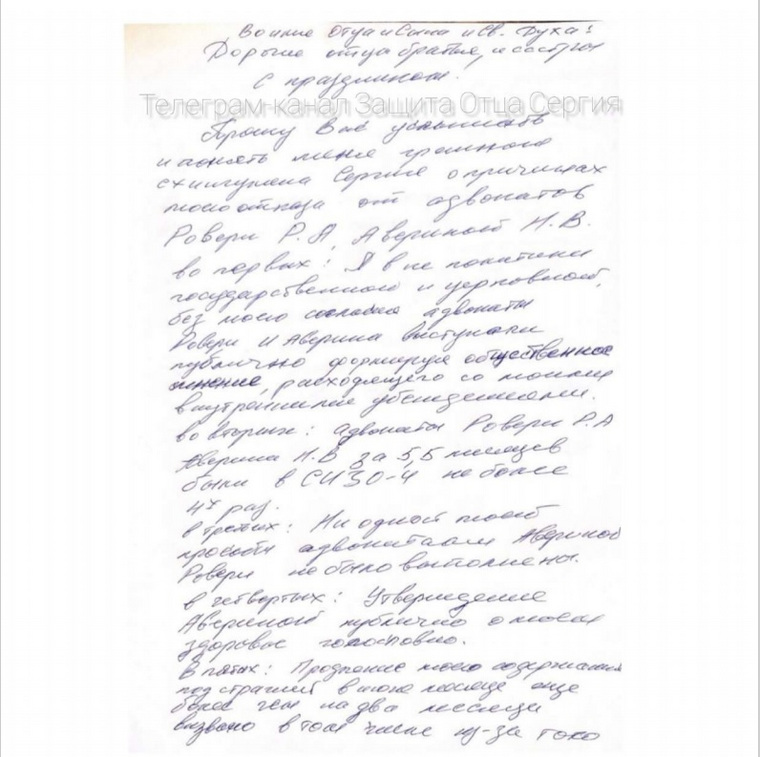 Во имя Отца и Сына и Св. Духа!
Дорогие отцы братья, и сестры
С праздником.
Телеграм-канал Защита Отца Сергия
Прошу Вас услышать
и понять меня грешного
схиигумена Сергия о причинах
моего отказа от адвокатов
Ровери Р.А, Авериной Н.В.
во первых: Я вне политики
государственной и церковной,
без моего согласия адвокаты
Ровери и Аверина выступали
публично формируя общественное
мнение, расходящего со моими
внутренними убеждениями.
во вторых: адвокаты Ровери Р.А
Аверина Н.В за 5,5 месяцев
были в СИЗО-4 не более
4х раз.
в третьих: Ни одной моей
просьбы адвокатами Авериной
Ровери не было выполнены.
в четвертых: Утверждение
Авериной публично о моем
здоровье голословно.
В пятых: Продление моего содержания
под стражей в июне месяце еще
более чем на два месяца
вызвано в том числе из-за того